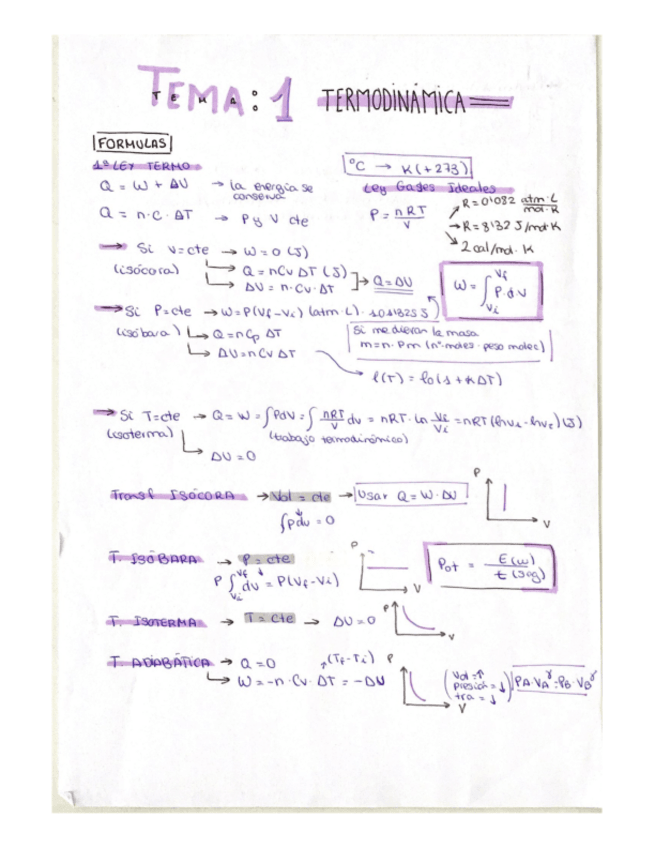 TEMA: 1 TERMODINÁMICA
FORMULAS
1ª LEY TERMO
°C → K (+273)
Q = W + ΔU → La energía se conserva
Ley Gases Ideales
P = nRT/V
R = 0'082 atm·L/mol·K
R = 8'32 J/mol·K
2 cal/mol·K
Q = n·C·ΔT → P y V cte
→ Si V=cte → W=0 (J)
(isócora) → Q = nCv ΔT (J)
→ ΔU = n·Cv·ΔT ] → Q = ΔU
W = ∫Vi Vf P·dV
→ Si P=cte → W=P(Vf-Vi) (atm·L)·101'325 J
(isóbara) → Q=nCp ΔT
→ ΔU=nCv ΔT
Si me dieran la masa
m=n·Pm (nº moles·peso molec)
l(T) = l0(1+KΔT)
→ Si T=cte → Q = W = ∫PdV = ∫ nRT/V dv = nRT·Ln Vf/Vi = nRT (
(isoterma) (trabajo termodinámico)
→ ΔU=0
Transf ISÓCORA → Vol = cte → Usar Q = W·ΔU
∫pdv = 0
P
V
T. ISÓBARA → P = cte
P ∫Vi Vf dv = P(Vf-Vi)
P
V
Pot = E(w)/t (seg)
T. ISOTERMA → T = cte → ΔU=0
P
V
T. ADIABÁTICA → Q=0 (Tf-Ti)
→ W=-n·Cv·ΔT = -ΔU
P
V
(Vol=↑
presión=↓
tra=↓)
PA·VA^γ=PB·VB^γ